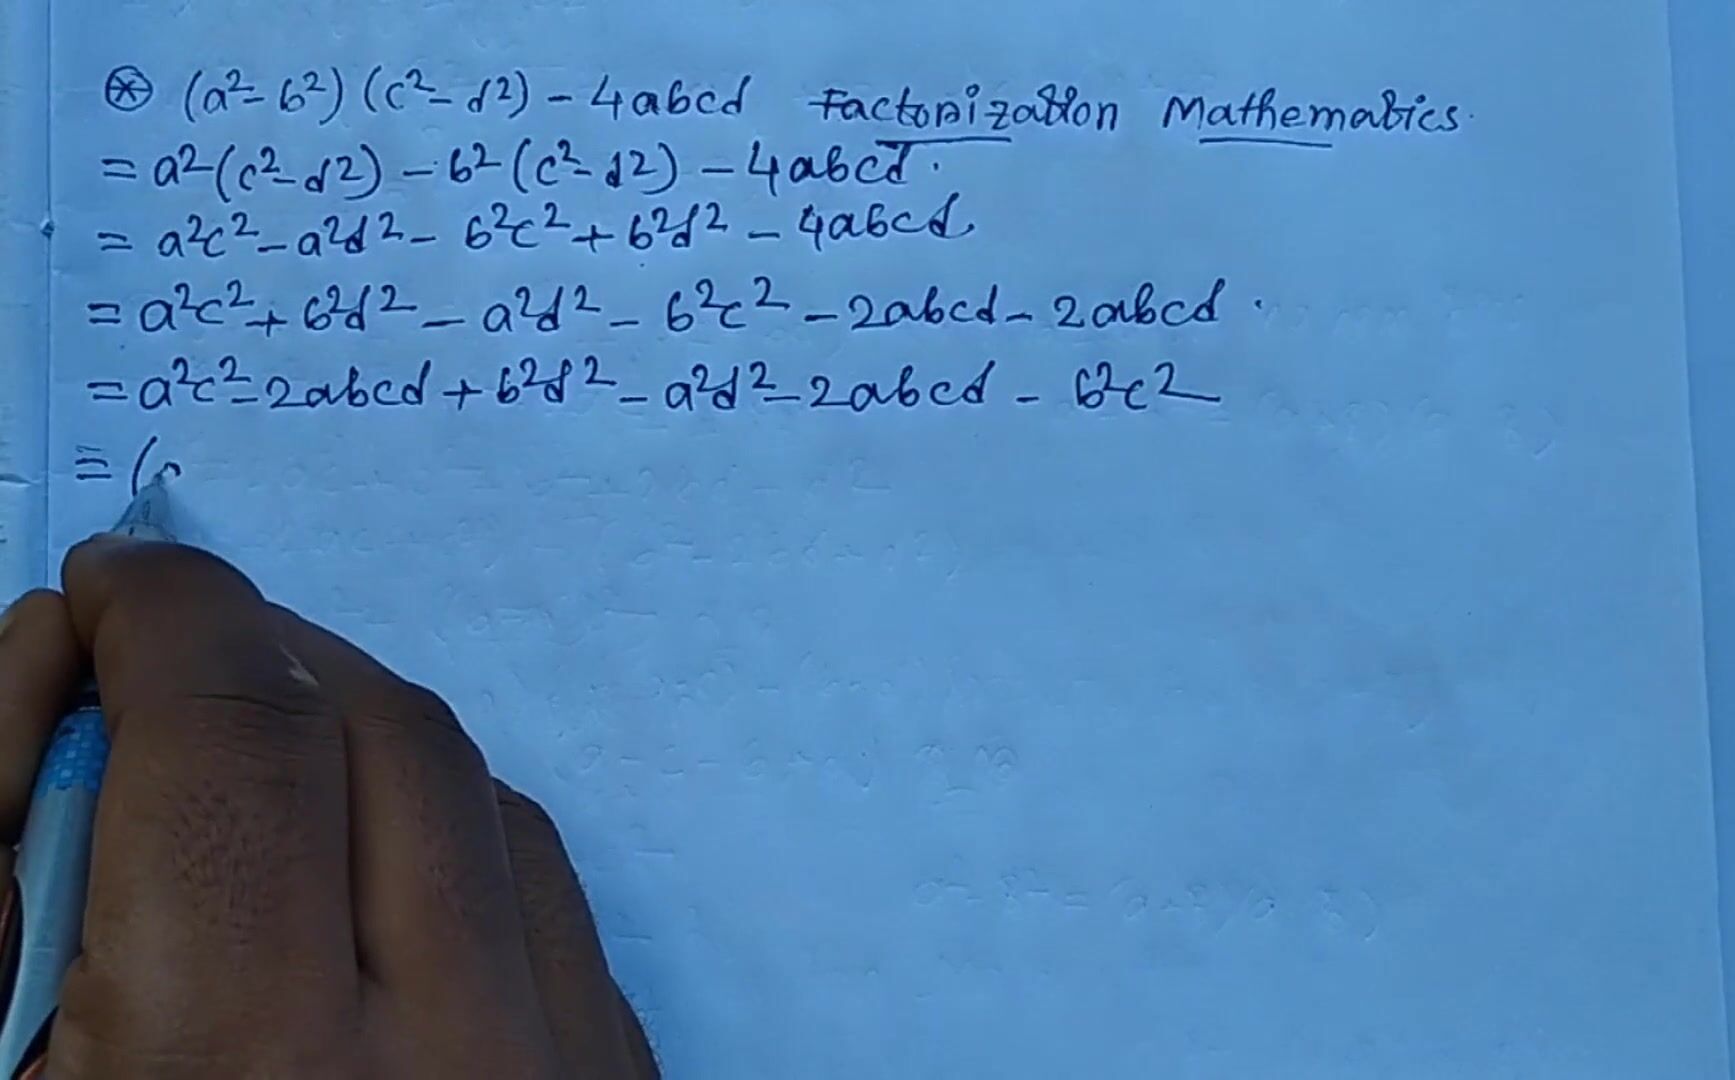 ⊛ (a²-b²) (c²-d²) - 4abcd Factorization Mathematics.
= a²(c²-d²) - b²(c²-d²) - 4abcd.
= a²c² - a²d² - b²c² + b²d² - 4abcd.
= a²c² + b²d² - a²d² - b²c² - 2abcd - 2abcd.
= a²c² - 2abcd + b²d² - a²d² - 2abcd - b²c²
= (